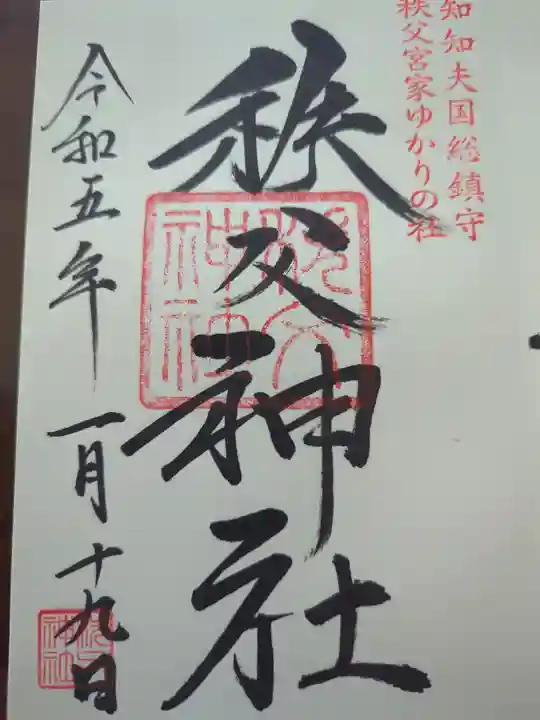 知知夫国総鎮守
秩父宮家ゆかりの社
秩父神社
秩父
神社
令和五年一月十九日
秩父
神社